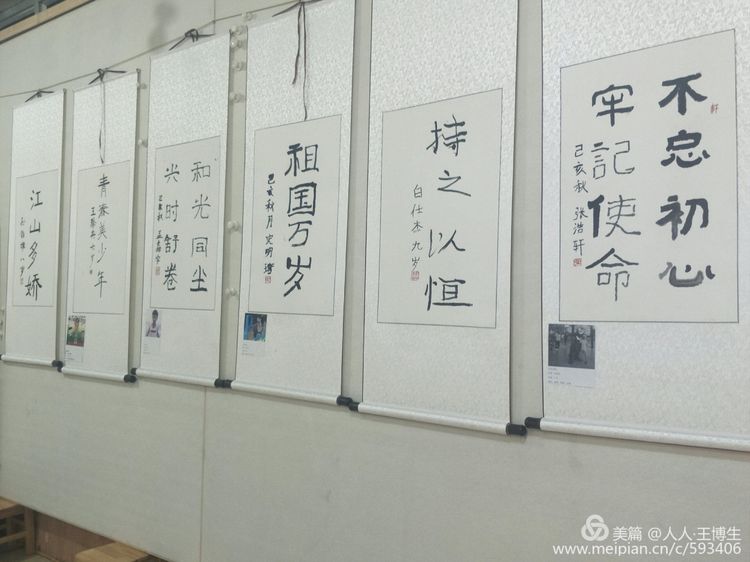 不忘初心
牢記使命
己亥秋 张浩轩
持之以恒
白仕杰九岁
祖国万岁
己亥秋月
和光同尘
兴时舒卷
青春美少年
江山多娇
美篇 @人人·王博生
www.meipian.cn/c/593406